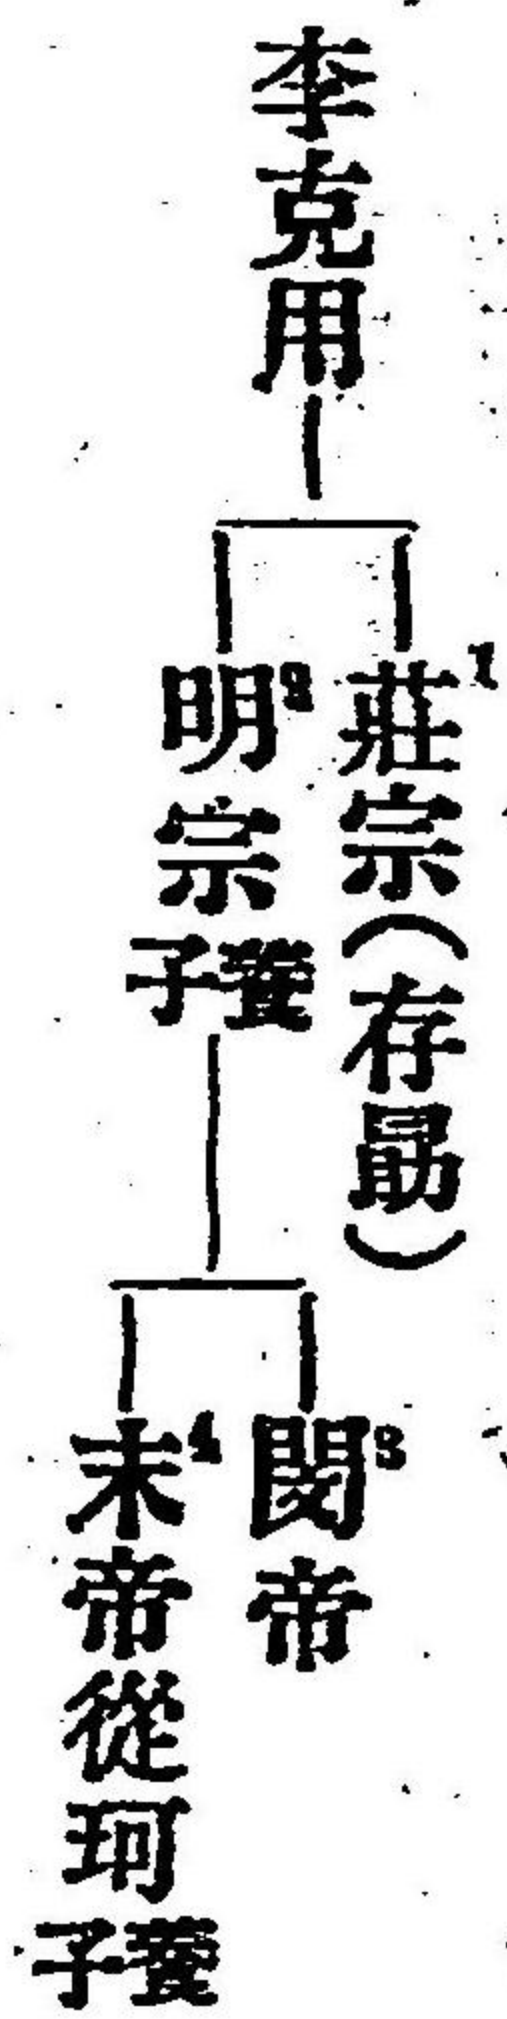 李克用
1
莊宗(存勗)
2
明宗養子
3
閔帝
4
末帝從珂養子